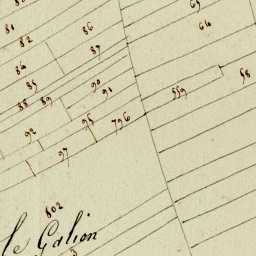 81
82
86
87
84
85
88
89
90
91
92
95
796
97
559
58
66
802
le Galion